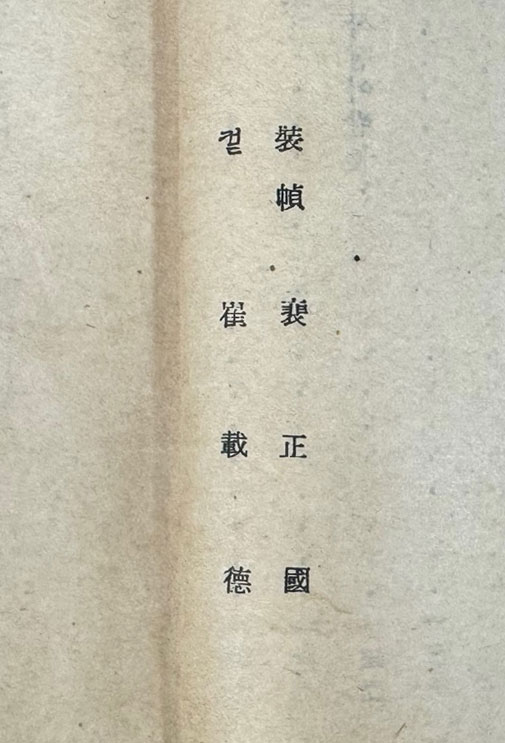 裝幀 裵正國
컽 崔載德